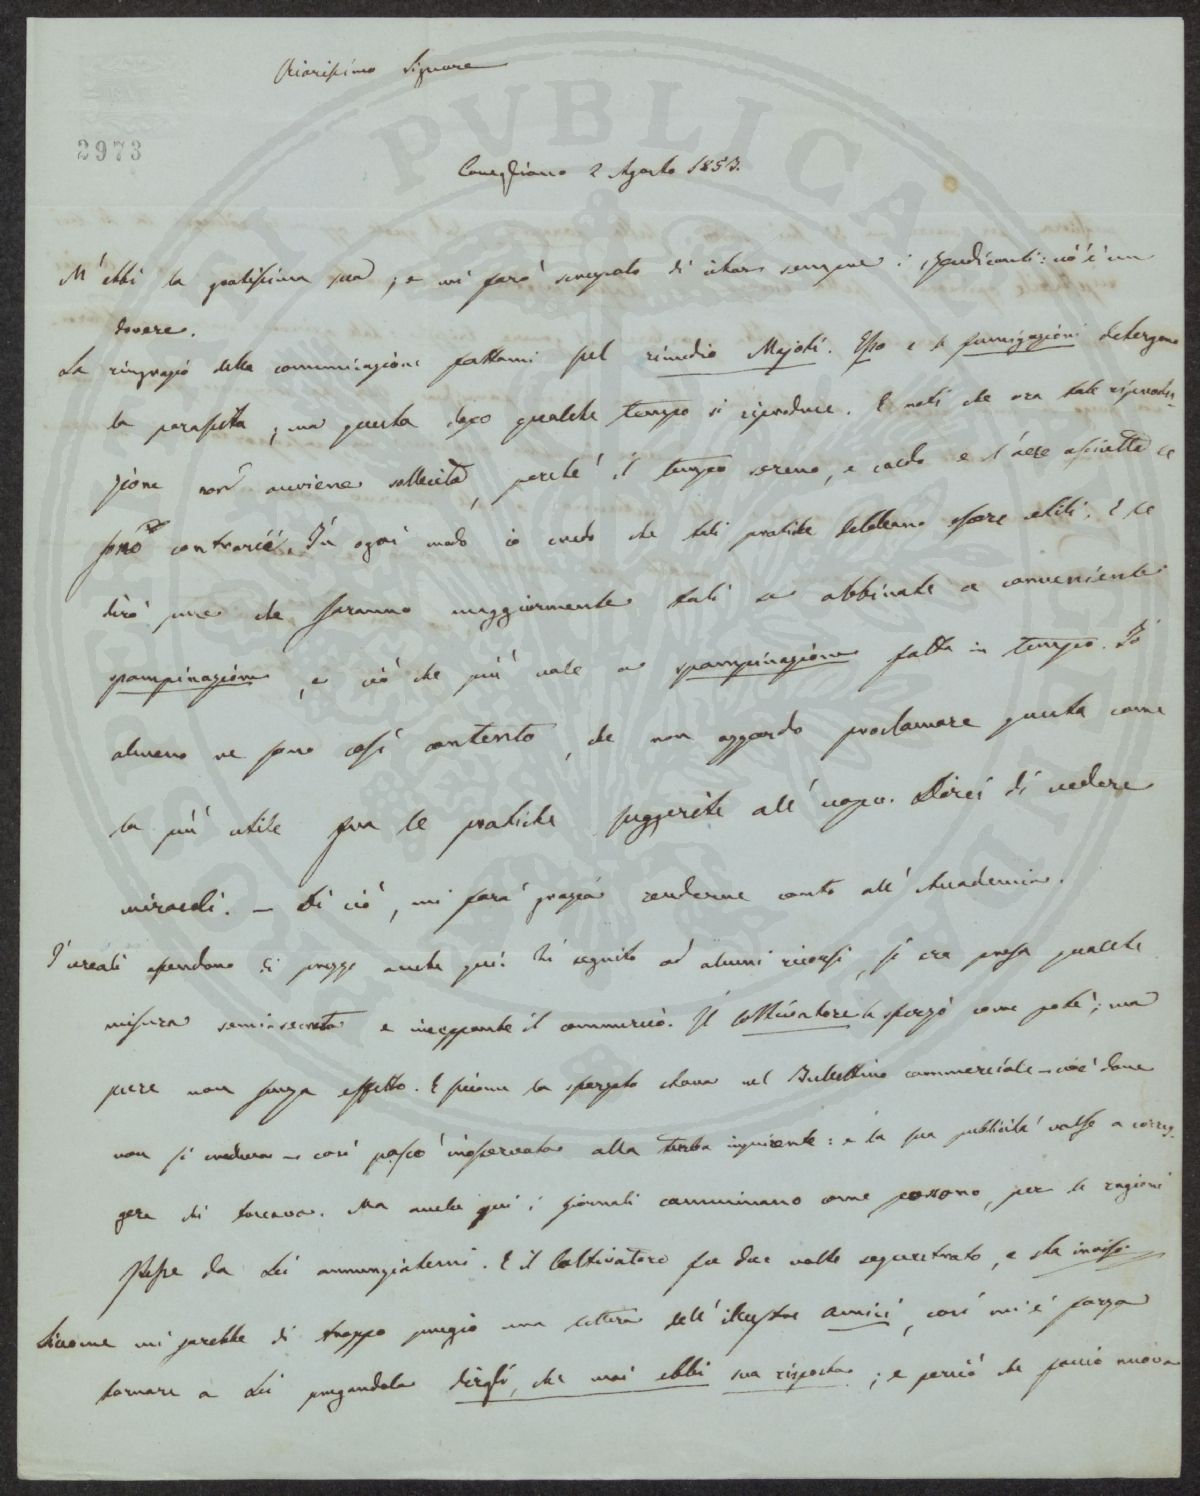 Chiarissimo Signore
2973
Conegliano 2 Agosto 1853.
M'ebbi la gratissima sua, e mi farò scrupolo di citar sempre i Rendiconti: ciò è un
dovere.
La ringrazio della comunicazione fattami pel rimedio Majoli. Esso e le fumigazioni detergono
la parassita, ma questa dopo qualche tempo si riproduce. E noti che ora tale riprodu-
zione non avviene sollecita, perchè il tempo sereno, e caldo e l'aere asciutto le
sono contrarii. In ogni modo io credo che tali pratiche debbano essere utili. E Le
dirò pure che saranno maggiormente tali se abbinate a conveniente
spampinazione, e ciò che più vale a spampinazione fatta in tempo. Io
almeno ne sono così contento, che non azzardo proclamare questa come
la più utile fra le pratiche suggerite all'uopo. Direi di vedere
miracoli. – Di ciò, mi farà grazia renderne conto all'Accademia.
I cereali ascendono di prezzo anche quì. In seguito ad alcuni ricorsi, si era presa qualche
misura semi-secreta e inceppante il commercio. Il Coltivatore la sferzò come potè; ma
pure non senza effetto. E siccome la sferzata stava nel Bullettino commerciale – cioè dove
non si credeva – così passò inosservata alla turba inquirente: e la sua publicità valse a correg-
gere chi toccava. Ma anche quì i giornali camminano come possono, per le ragioni
stesse da Lei annunziatemi. E il Coltivatore fu due volte sequestrato, e sta inciso
Siccome mi sarebbe di troppo pregio una lettera dell'illustre Amici, così mi è forza
tornare a Lei pregandola dirgli, che mai ebbi sua risposta; e perciò che faccio nuova
PVBLICA